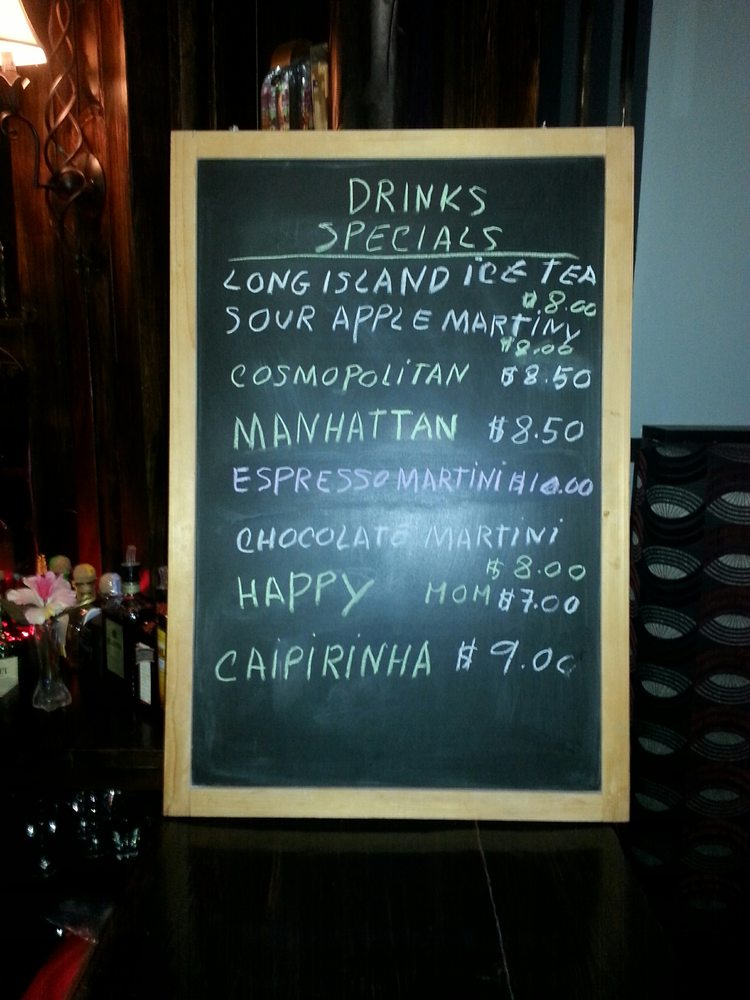 DRINKS
SPECIALS
LONG ISLAND ICE TEA
$8.00
SOUR APPLE MARTINY
$8.00
COSMOPOLITAN $8.50
MANHATTAN $8.50
ESPRESSO MARTINI $10.00
CHOCOLATE MARTINI
$8.00
HAPPY MOM $7.00
CAIPIRINHA $9.00